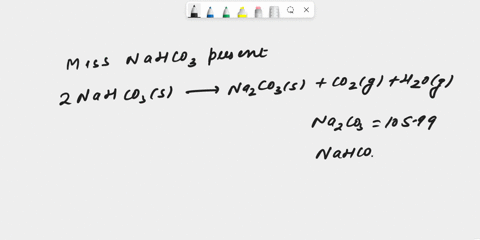 Mass NaHCO3 present
2 NaHCO3(s) ⟶ Na2CO3(s) + CO2(g) + H2O(g)
Na2CO3 = 105.99
NaHCO.